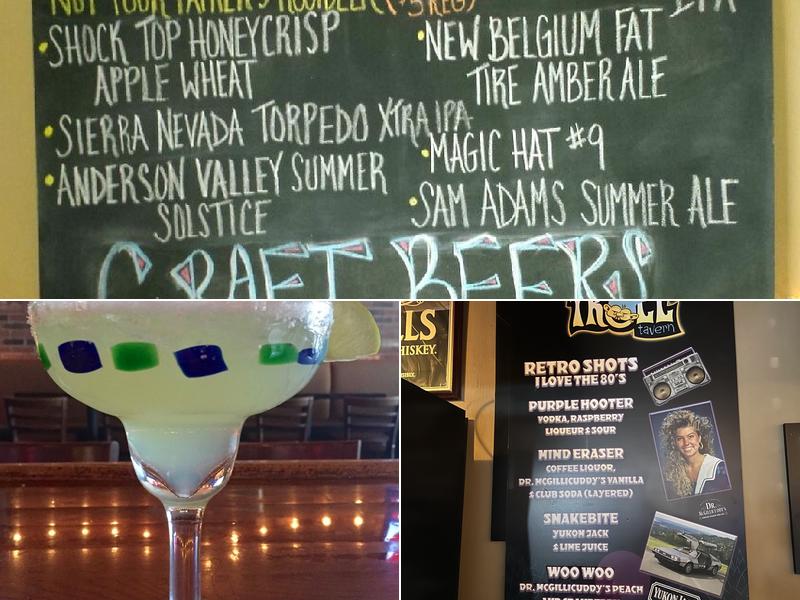 NOT YOUR FATHER'S ROOTBEER (+$3 REG)
IPA
SHOCK TOP HONEYCRISP
APPLE WHEAT
SIERRA NEVADA TORPEDO XTRA IPA
ANDERSON VALLEY SUMMER
SOLSTICE
NEW BELGIUM FAT
TIRE AMBER ALE
MAGIC HAT #9
SAM ADAMS SUMMER ALE
CRAFT BEERS
LLS
HISKEY.
TROLL
tavern
RETRO SHOTS
I LOVE THE 80'S
PURPLE HOOTER
VODKA, RASPBERRY
LIQUEUR & SOUR
MIND ERASER
COFFEE LIQUOR,
DR. MCGILLICUDDY'S VANILLA
& CLUB SODA (LAYERED)
SNAKEBITE
YUKON JACK
& LIME JUICE
WOO WOO
DR. MCGILLICUDDY'S PEACH
DR.
MCGILLICUDDY'S
YUKON JA